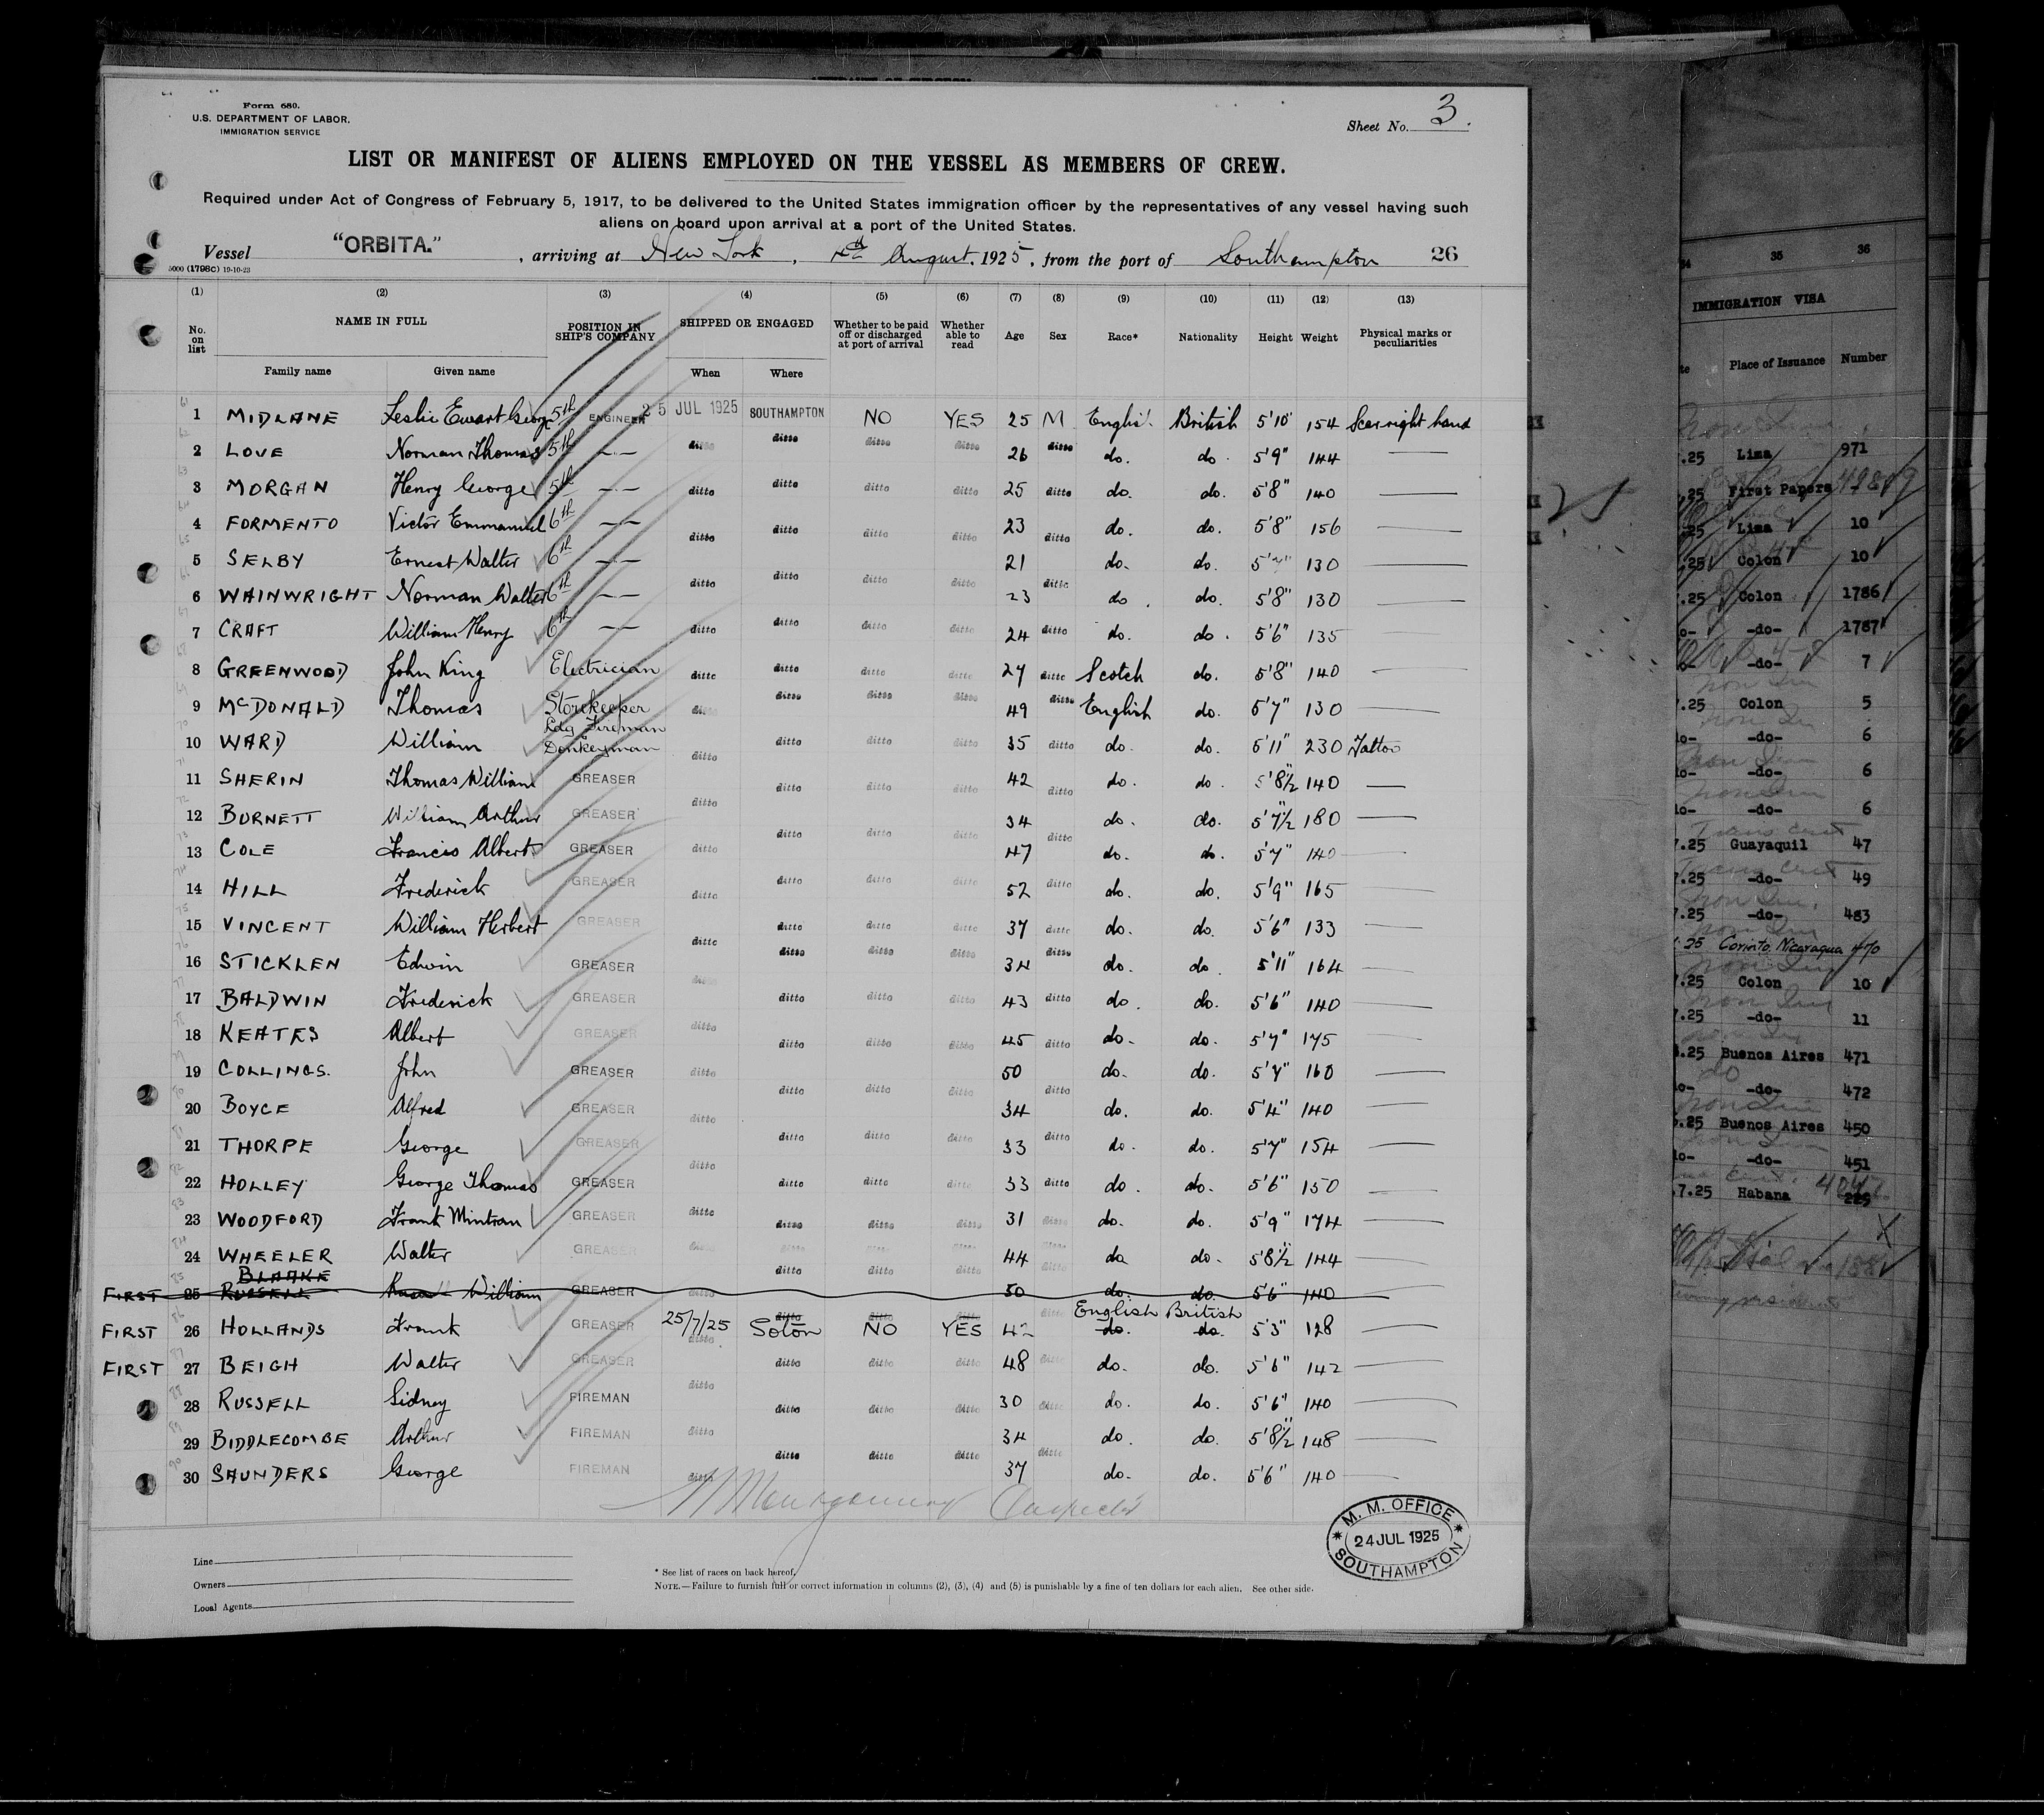 Form 680.
U.S. DEPARTMENT OF LABOR.
IMMIGRATION SERVICE
Sheet No. 3.
LIST OR MANIFEST OF ALIENS EMPLOYED ON THE VESSEL AS MEMBERS OF CREW.
Required under Act of Congress of February 5, 1917, to be delivered to the United States immigration officer by the representatives of any vessel having such
aliens on board upon arrival at a port of the United States.
Vessel "ORBITA." , arriving at New York , August, 1925, from the port of Southampton 26
5000 (1796C) 19-10-23
(1) (2) (3) (4) (5) (6) (7) (8) (9) (10) (11) (12) (13)
No. on list NAME IN FULL POSITION IN SHIP'S COMPANY SHIPPED OR ENGAGED Whether to be paid off or discharged at port of arrival Whether able to read Age Sex Race* Nationality Height Weight Physical marks or peculiarities
Family name Given name When Where
1 MIDLANE Leslie Ewart George 5th ENGINEER 25 JUL 1925 SOUTHAMPTON NO YES 25 M English British 5'10" 154 Scar right hand
2 LOVE Norman Thomas 5th -"- ditto ditto ditto ditto 26 ditto do. do. 5'9" 144 —
3 MORGAN Henry George 5th -"- ditto ditto ditto ditto 25 ditto do. do. 5'8" 140 —
4 FORMENTO Victor Emmanuel 6th -"- ditto ditto ditto ditto 23 ditto do. do. 5'8" 156 —
5 SELBY Ernest Walter 6th -"- 21 do. do. 5'7" 130 —
6 WAINWRIGHT Norman Walter 6th -"- ditto ditto ditto ditto 23 ditto do. do. 5'8" 130 —
7 CRAFT William Henry 6th -"- ditto ditto ditto ditto 24 ditto do. do. 5'6" 135 —
8 GREENWOOD John King Electrician ditto ditto ditto ditto 27 ditto Scotch do. 5'8" 140 —
9 McDONALD Thomas Storekeeper ditto ditto ditto ditto 49 ditto English do. 5'7" 130 —
10 WARD William Ldg Fireman Donkeyman ditto ditto ditto ditto 35 ditto do. do. 5'11" 230 Tattoo
11 SHERIN Thomas William GREASER ditto ditto ditto 42 ditto do. do. 5'8½" 140 —
12 BURNETT William Arthur GREASER ditto 34 do. do. 5'7½" 180 —
13 COLE Francis Albert GREASER ditto ditto ditto ditto 47 ditto do. do. 5'7" 140 —
14 HILL Frederick GREASER ditto ditto ditto ditto 52 ditto do. do. 5'9" 165 —
15 VINCENT William Herbert GREASER ditto ditto ditto 37 ditto do. do. 5'6" 133 —
16 STICKLEN Edwin GREASER ditto ditto ditto ditto 34 ditto do. do. 5'11" 164 —
17 BALDWIN Frederick GREASER ditto ditto ditto ditto 43 ditto do. do. 5'6" 140 —
18 KEATES Albert GREASER ditto ditto ditto ditto 45 ditto do. do. 5'7" 175 —
19 COLLINGS. John GREASER ditto 50 do. do. 5'7" 160 —
20 BOYCE Alfred GREASER ditto ditto ditto ditto 34 ditto do. do. 5'4" 140 —
21 THORPE George GREASER ditto ditto ditto 33 ditto do. do. 5'7" 154 —
22 HOLLEY George Thomas GREASER ditto ditto ditto ditto 33 ditto do. do. 5'6" 150 —
23 WOODFORD Frank Mintran GREASER ditto ditto ditto ditto 31 ditto do. do. 5'9" 174 —
24 WHEELER Walter GREASER ditto ditto ditto ditto 44 ditto do. do. 5'8½" 144 —
BLAAKE
FIRST 25 RUSSELL William GREASER ditto ditto ditto ditto 50 ditto do. do. 5'6" 140
FIRST 26 HOLLANDS Frank GREASER 25/7/25 Soton NO YES 42 ditto English British do. do. 5'3" 128 —
FIRST 27 BEIGH Walter GREASER ditto ditto ditto ditto 48 ditto do. do. 5'6" 142 —
28 RUSSELL Sidney FIREMAN ditto ditto ditto ditto 30 ditto do. do. 5'6" 140 —
29 BIDDLECOMBE Arthur FIREMAN ditto 34 do. do. 5'8½" 148 —
30 SAUNDERS George FIREMAN ditto ditto ditto ditto 37 ditto do. do. 5'6" 140 —
Montgomery Inspector
M. M. OFFICE
24 JUL 1925
SOUTHAMPTON
Line
Owners
Local Agents
* See list of races on back hereof.
NOTE.—Failure to furnish full or correct information in columns (2), (3), (4) and (5) is punishable by a fine of ten dollars for each alien. See other side.
34 35 36
IMMIGRATION VISA
Place of Issuance Number
.25 Lima 971
.25 First Papers
.25 Lima 10
.25 Colon 10
.25 Colon 1786
-do- 1787
-do- 7
.25 Colon 5
-do- 6
-do- 6
-do- 6
.25 Guayaquil 47
.25 -do- 49
7.25 -do- 483
.25 Corinto, Nicaragua 470
7.25 Colon 10
.25 -do- 11
.25 Buenos Aires 471
-do- 472
.25 Buenos Aires 450
-do- 451
.7.25 Habana 225